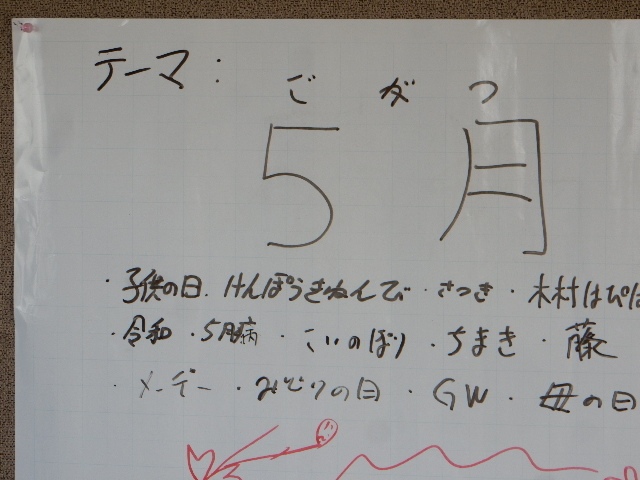 テーマ：
ごがつ
5月
・子供の日・けんぽうきねんび・さつき・木村はぴば
・令和・5月病・こいのぼり・ちまき・藤
・メーデー・みどりの日・GW・母の日